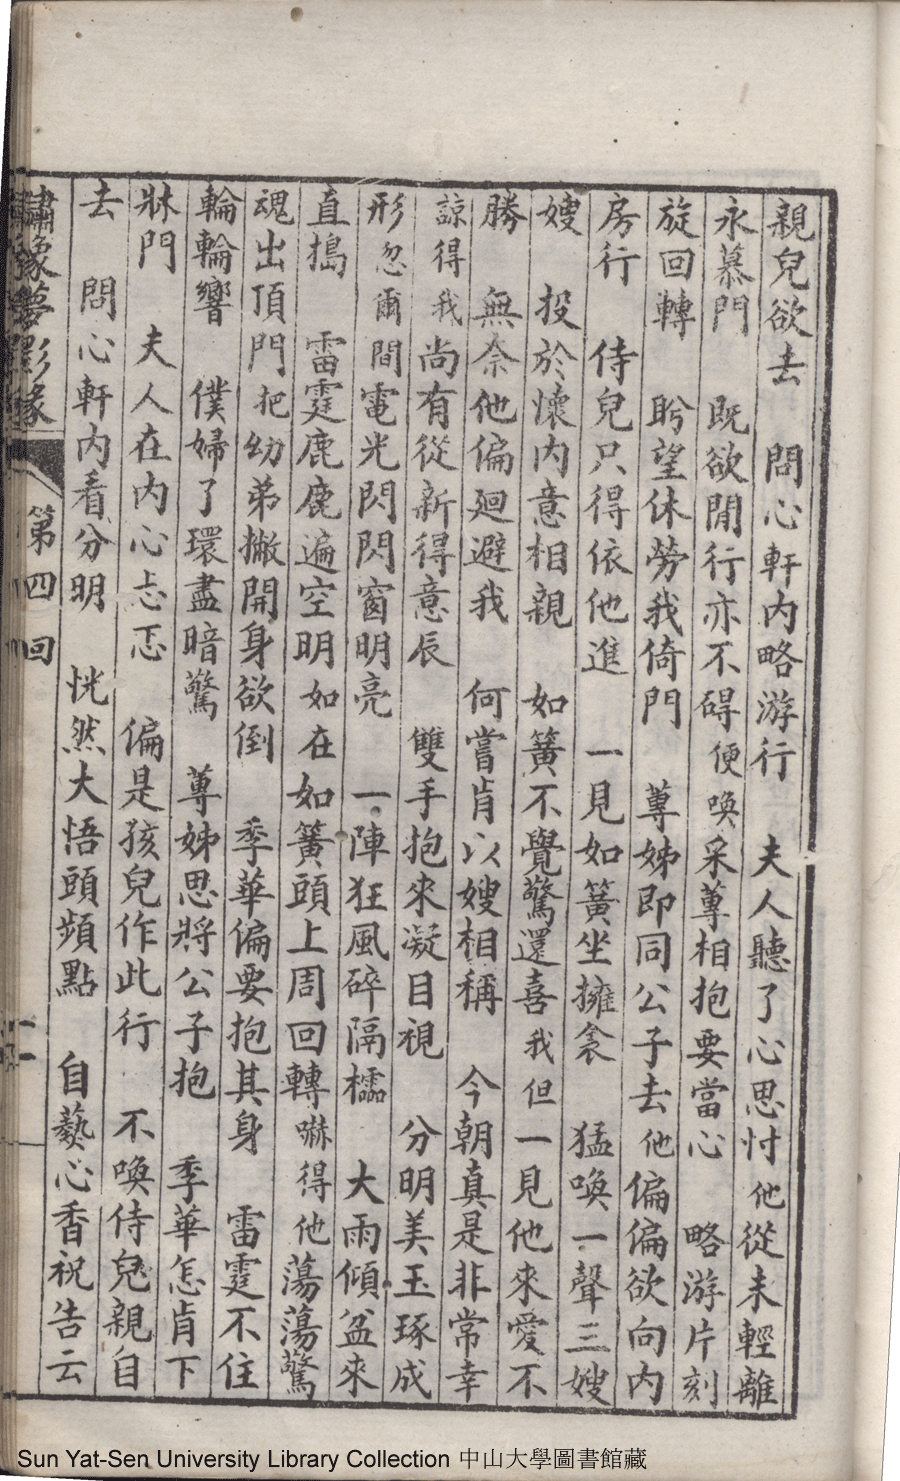 親兒欲去　問心軒内略游行　夫人聽了心思忖他從未輕離
永慕門　既欲閒行亦不碍便喚采蓴相抱要當心　略游片刻
旋回轉　盻望休勞我倚門　蓴姊即同公子去他偏偏欲向内
房行　侍兒只得依他進　一見如簧坐擁衾　猛喚一聲三嫂
嫂　投於懷内意相親　如簧不覺驚還喜我但一見他來愛不
勝　無奈他偏廻避我　何嘗肯以嫂相稱　今朝真是非常幸
諒得我尚有從新得意辰　雙手抱來凝目視　分明美玉琢成
形忽爾間電光閃閃窗明亮　一陣狂風碎隔櫺　大雨傾盆來
直搗　雷霆鹿鹿遍空明如在如簧頭上周回轉嚇得他蕩蕩驚
魂出頂門把幼弟撇開身欲倒　季華偏要抱其身　雷霆不住
輪輪響　僕婦了環盡暗驚　蓴姊思將公子抱　季華怎肯下
牀門　夫人在内心忐忑　偏是孩兒作此行　不喚侍兒親自
去　問心軒内看分明　恍然大悟頭頻點　自爇心香祝告云
繡像夢影緣　第四回
Sun Yat-Sen University Library Collection 中山大學圖書館藏